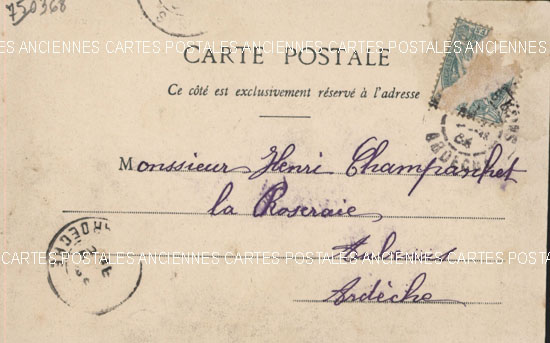 750368
POSTALES ANCIENNES CARTES POSTALES ANCIENNES CARTES POSTALES ANCIENNES
CARTE POSTALE
Ce côté est exclusivement réservé à l'adresse
ARDÈCHE
Monssieur Henri Champanhet
la Roseraie
ARDÈCHE
POSTALES ANCIENNES CARTES POSTALES ANCIENNES CARTES POSTALES ANCIENNES
Ardèche